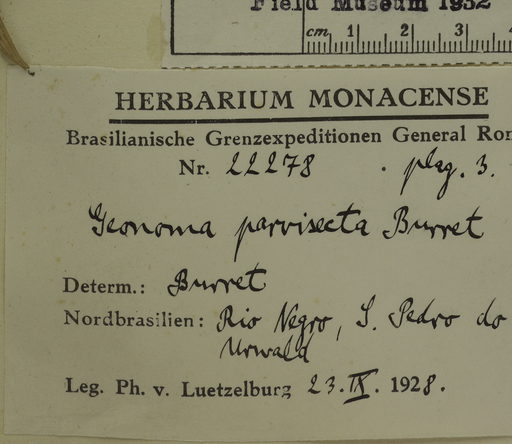 Field Museum 1932
cm 1 2 3
HERBARIUM MONACENSE
Brasilianische Grenzexpeditionen General Ron
Nr. 22278 . plag. 3.
Geonoma parvisecta Burret
Determ.: Burret
Nordbrasilien: Rio Negro, S. Pedro do
Urwald
Leg. Ph. v. Luetzelburg 23. IX. 1928.